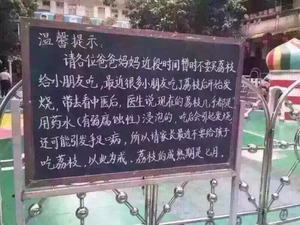 温馨提示:
请各位爸爸妈妈近段时间暂时不要买荔枝
给小朋友吃,最近很多小朋友吃了荔枝后开始发
烧,带去看中医后,医生说现在的荔枝几乎都是
用药水(有弱腐蚀性)浸泡的,吃后会引起发烧
还可能引发手足口病,所以请家长最近不要给孩子
吃荔枝,以此为戒,荔枝的成熟期是七月。